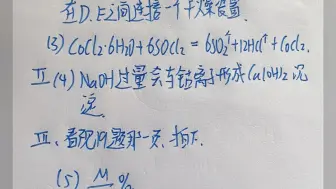 在D、E之间连接一个干燥装置.
(3) CoCl₂·6H₂O+6SOCl₂=6SO₂↑+12HCl↑+CoCl₂.
Ⅱ(4) NaOH过量会与钴离子形成Co(OH)₂沉
淀.
Ⅲ.看观问题那一页,拍下.
(5) M%